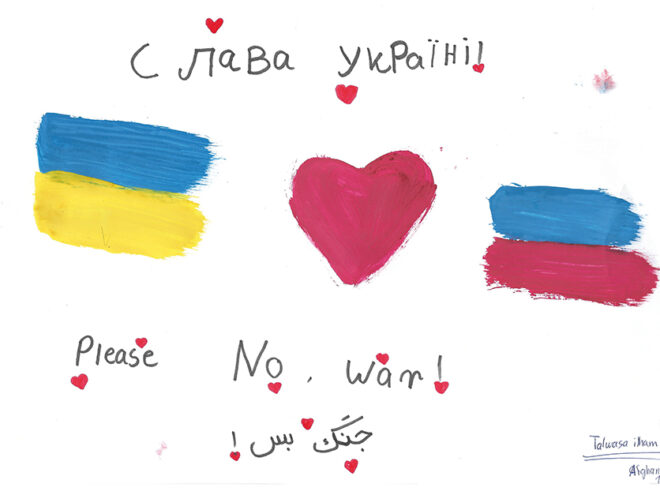 Слава Україні!
Please No, war!
جنگ بس!
Talwasa ilham